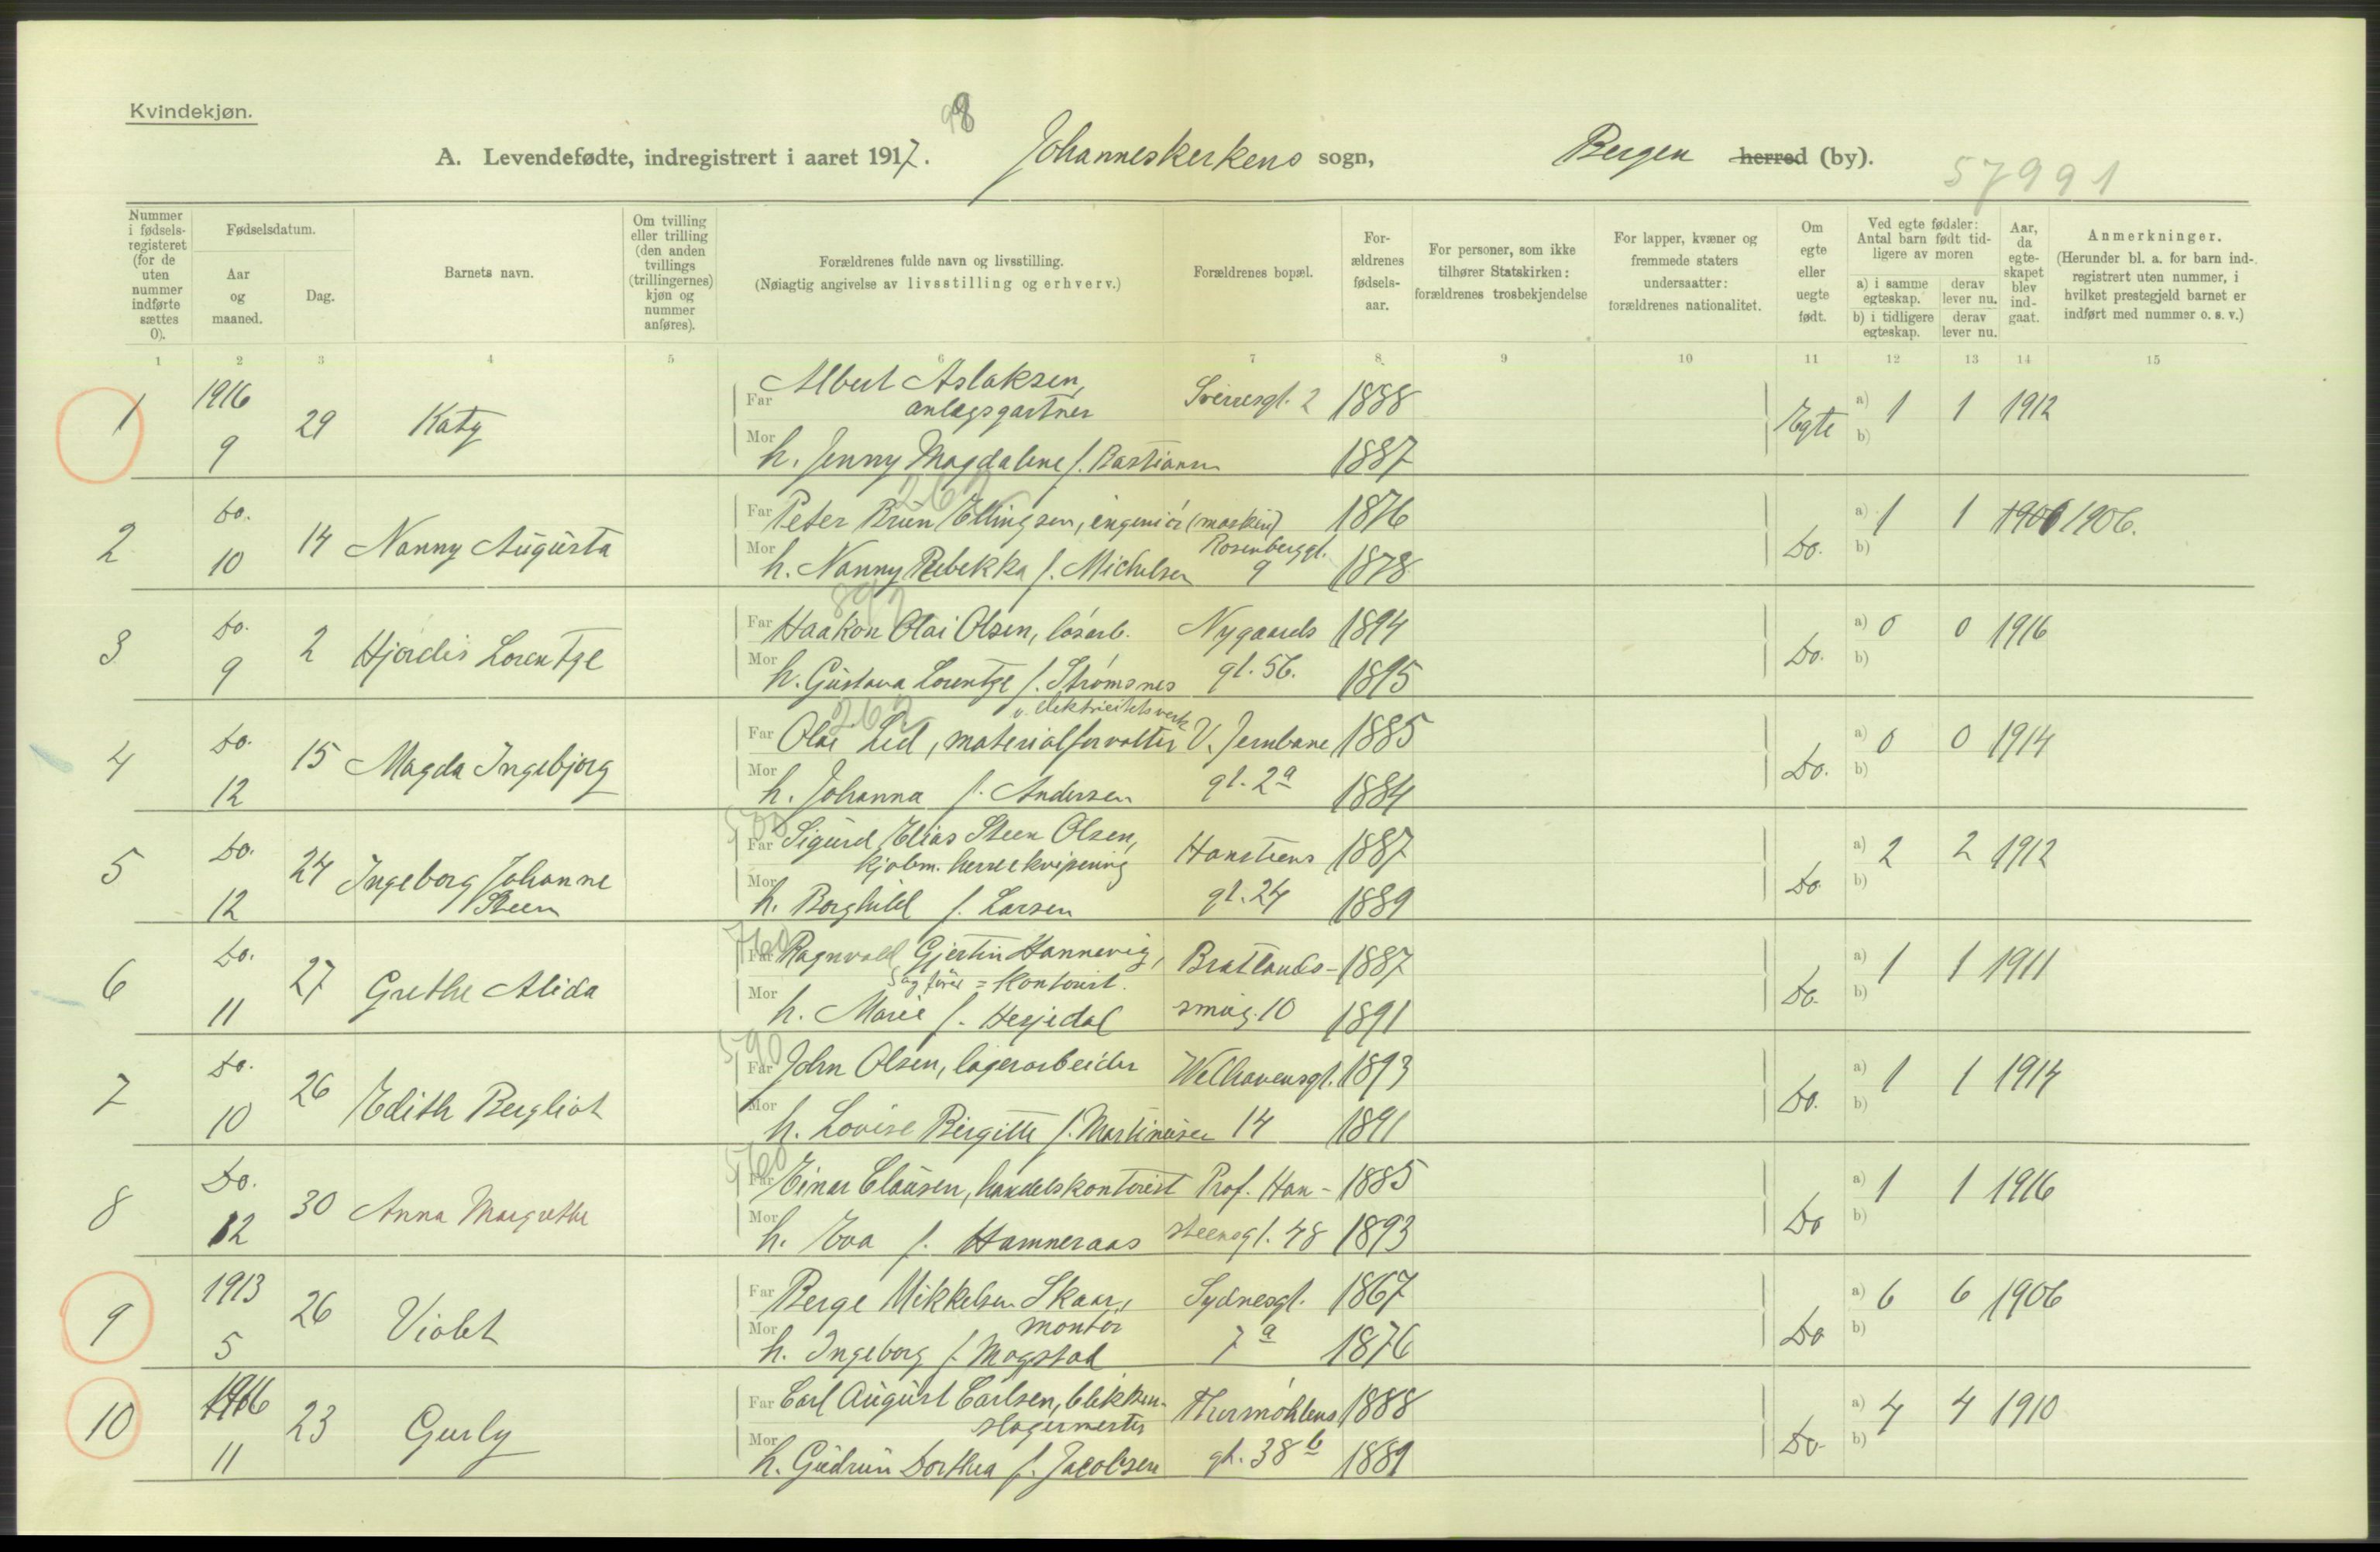 Kvindekjøn.
98
A. Levendefødte, indregistrert i aaret 1917. Johanneskerkens sogn, Bergen herred (by).
57991
Nummer i fødsels-registeret (for de uten nummer indførte sættes 0).
Fødselsdatum.
Aar og maaned.
Dag.
Barnets navn.
Om tvilling eller trilling (den anden tvillings (trillingernes) kjøn og nummer anføres).
Forældrenes fulde navn og livsstilling.
(Nøiagtig angivelse av livsstilling og erhverv.)
Forældrenes bopæl.
For-ældrenes fødsels-aar.
For personer, som ikke tilhører Statskirken: forældrenes trosbekjendelse
For lapper, kvæner og fremmede staters undersaatter: forældrenes nationalitet.
Om egte eller uegte født.
Ved egte fødsler: Antal barn født tid-ligere av moren
a) i samme egteskap. derav lever nu.
b) i tidligere egteskap. derav lever nu.
Aar, da egte-skapet blev ind-gaat.
Anmerkninger.
(Herunder bl. a. for barn ind-registrert uten nummer, i hvilket prestegjeld barnet er indført med nummer o. s. v.)
1 2 3 4 5 6 7 8 9 10 11 12 13 14 15
1 1916 9 29 Katy
Far Albert Aslaksen, anlægsgartner Sverresgt. 2 1888
Mor h. Jenny Magdalene f. Bastiansen 1887
Egte a) 1 1 1912
b)
2 Do. 10 14 Nanny Augusta
267
Far Peter Brun Ellingsen, ingeniör (maskin) 1876
Mor h. Nanny Rebekka f. Michelsen Rosenberggt. 9 1878
Do. a) 1 1 1906 1906.
b)
3 Do. 9 2 Hjørdis Lorentze
897
Far Haakon Olai Olsen, løsarb. Nygaards 1894
Mor h. Gustava Lorentze f. Strømsnes gt. 56. 1895
Do. a) 0 0 1916
b)
4 Do. 12 15 Magda Ingebjørg
267
v. elektricitetsverk
Far Olai Lid, materialforvalter V. Jernbane 1885
Mor h. Johanna f. Andersen gt. 2a 1884
Do. a) 0 0 1914
b)
5 Do. 12 24 Ingeborg Johanne Steen
500
Far Sigurd Elias Steen Olsen, kjøbm. herreekvipering Hansteens 1887
Mor h. Borghild f. Larsen gt. 24 1889
Do. a) 2 2 1912
b)
6 Do. 11 27 Grethe Alida
760
Far Ragnvald Gjertin Hannevig, sagfører=kontorist. Bratlands- 1887
Mor h. Marie f. Herjedal smug. 10 1891
Do. a) 1 1 1911
b)
7 Do. 10 26 Edith Bergliot
590
Far John Olsen, lagerarbeider Welhavensgt. 1893
Mor h. Lovise Birgitte f. Martinusen 14 1891
Do. a) 1 1 1914
b)
8 Do. 12 30 Anna Margrethe
560
Far Einar Clausen, handelskontorist Prof. Han- 1885
Mor h. Eva f. Hamneraas steensgt. 48 1893
Do a) 1 1 1916
b)
9 1913 5 26 Violet
Far Berge Mikkelsen Skaar, montör Sydnesgt. 1867
Mor h. Ingeborg f. Mogstad 7a 1876
Do a) 6 6 1906
b)
10 1916 11 23 Gurly
Far Carl August Carlsen, blikken-slagermester Thormöhlens 1888
Mor h. Gudrun Dorthea f. Jacobsen gt. 38b 1889
Do. a) 4 4 1910
b)